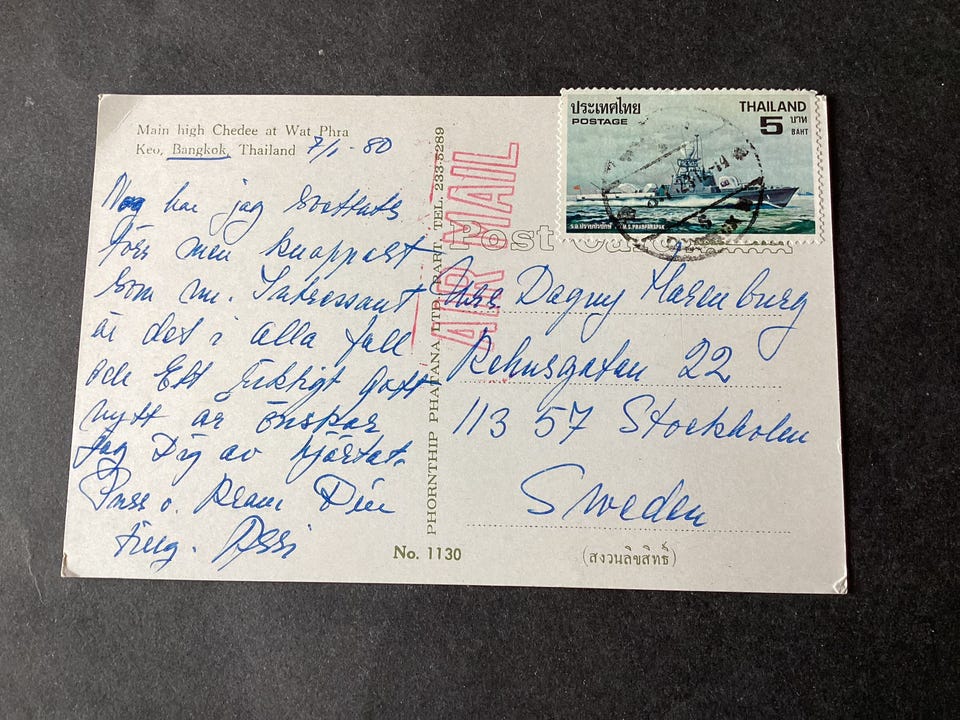 Main high Chedee at Wat Phra
Keo, Bangkok, Thailand 7/1-80
Nog har jag svettats
förr men knappast
som nu. Intressant
är det i alla fall
och Ett riktigt gott
nytt år önskar
jag Dig av hjärtat.
Puss o. Kram Din
Assi
PHORNTHIP PHATANA LTD., PART. TEL. 233-5289
No. 1130
AIR MAIL
Post Card
ประเทศไทย
POSTAGE
THAILAND
5 บาท
BAHT
ร.ล.ปราบปรปักษ์
H.T.M.S. PRABPARAPAK
Dagny Marenburg
Rehnsgatan 22
113 57 Stockholm
Sweden
(สงวนลิขสิทธิ์)